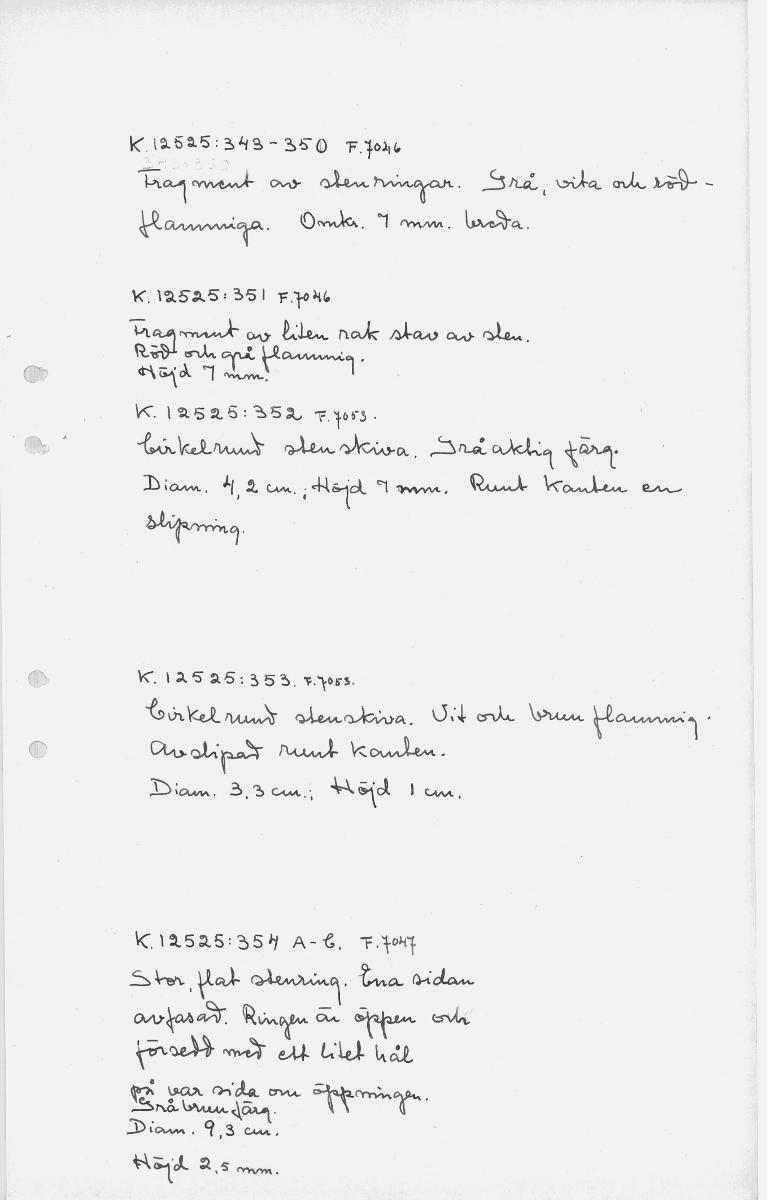 K. 12525:343-350 F.7046
Fragment av stenringar. Grå, vita och röd-
flammiga. Omkr. 7 mm. breda.
K. 12525:351 F.7046
Fragment av liten rak stav av sten.
Röd och grå flammig.
Höjd 7 mm.
K. 12525:352 F.7053.
Cirkelrund stenskiva. Gråaktig färg.
Diam. 4,2 cm.; Höjd 7 mm. Runt kanten en
slipning.
K. 12525:353. F.7053.
Cirkelrund stenskiva. Vit och brun flammig.
Avslipad runt kanten.
Diam. 3,3 cm.; Höjd 1 cm.
K. 12525:354 A-C. F.7047
Stor, flat stenring. Ena sidan
avfasad. Ringen är öppen och
försedd med ett litet hål
på var sida om öppningen.
Gråbrun färg.
Diam. 9,3 cm.
Höjd 2,5 mm.